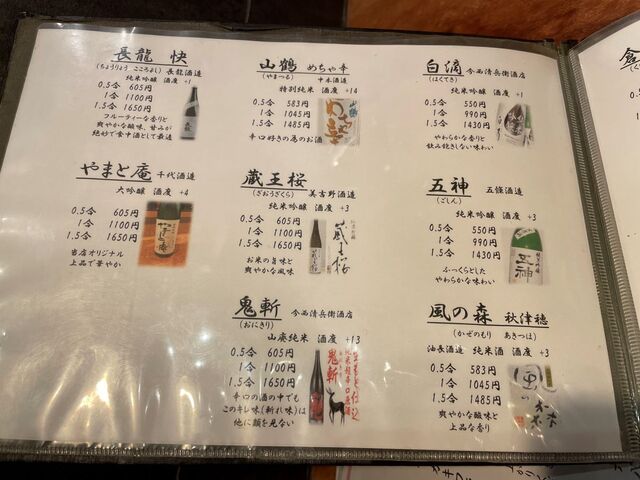 長龍 快
(ちょうりょう こころよし) 長龍酒造
純米吟醸 酒度 +1
0.5合 605円
1合 1100円
1.5合 1650円
フルーティーな香りと
爽やかな酸味、甘みが
絶妙で食中酒として最適
やまと庵 千代酒造
大吟醸 酒度 +4
0.5合 605円
1合 1100円
1.5合 1650円
当店オリジナル
上品で華やか
山鶴 めちゃ辛
(やまつる) 中本酒造
特別純米 酒度 +14
0.5合 583円
1合 1045円
1.5合 1485円
辛口好きの為のお酒
蔵王桜
(ざおうざくら) 美吉野酒造
純米吟醸 酒度 +3
0.5合 605円
1合 1100円
1.5合 1650円
お米の旨味と
爽やかな風味
蔵王桜
鬼斬
(おにきり) 今西清兵衛酒店
山廃純米 酒度 +13
0.5合 605円
1合 1100円
1.5合 1650円
辛口の酒の中でも
このキレ味(斬れ味)は
他に類を見ない
鬼斬
白滴 今西清兵衛酒店
(はくてき)
純米吟醸 酒度 +1
0.5合 550円
1合 990円
1.5合 1430円
やわらかな香りと
飲み飽きしない味わい
五神 五條酒造
(ごしん)
純米吟醸 酒度 +3
0.5合 550円
1合 990円
1.5合 1430円
ふっくらとした
やわらかな味わい
五神
風の森 秋津穂
(かぜのもり あきつほ)
油長酒造 純米酒 酒度 +3
0.5合 583円
1合 1045円
1.5合 1485円
爽やかな酸味と
上品な香り